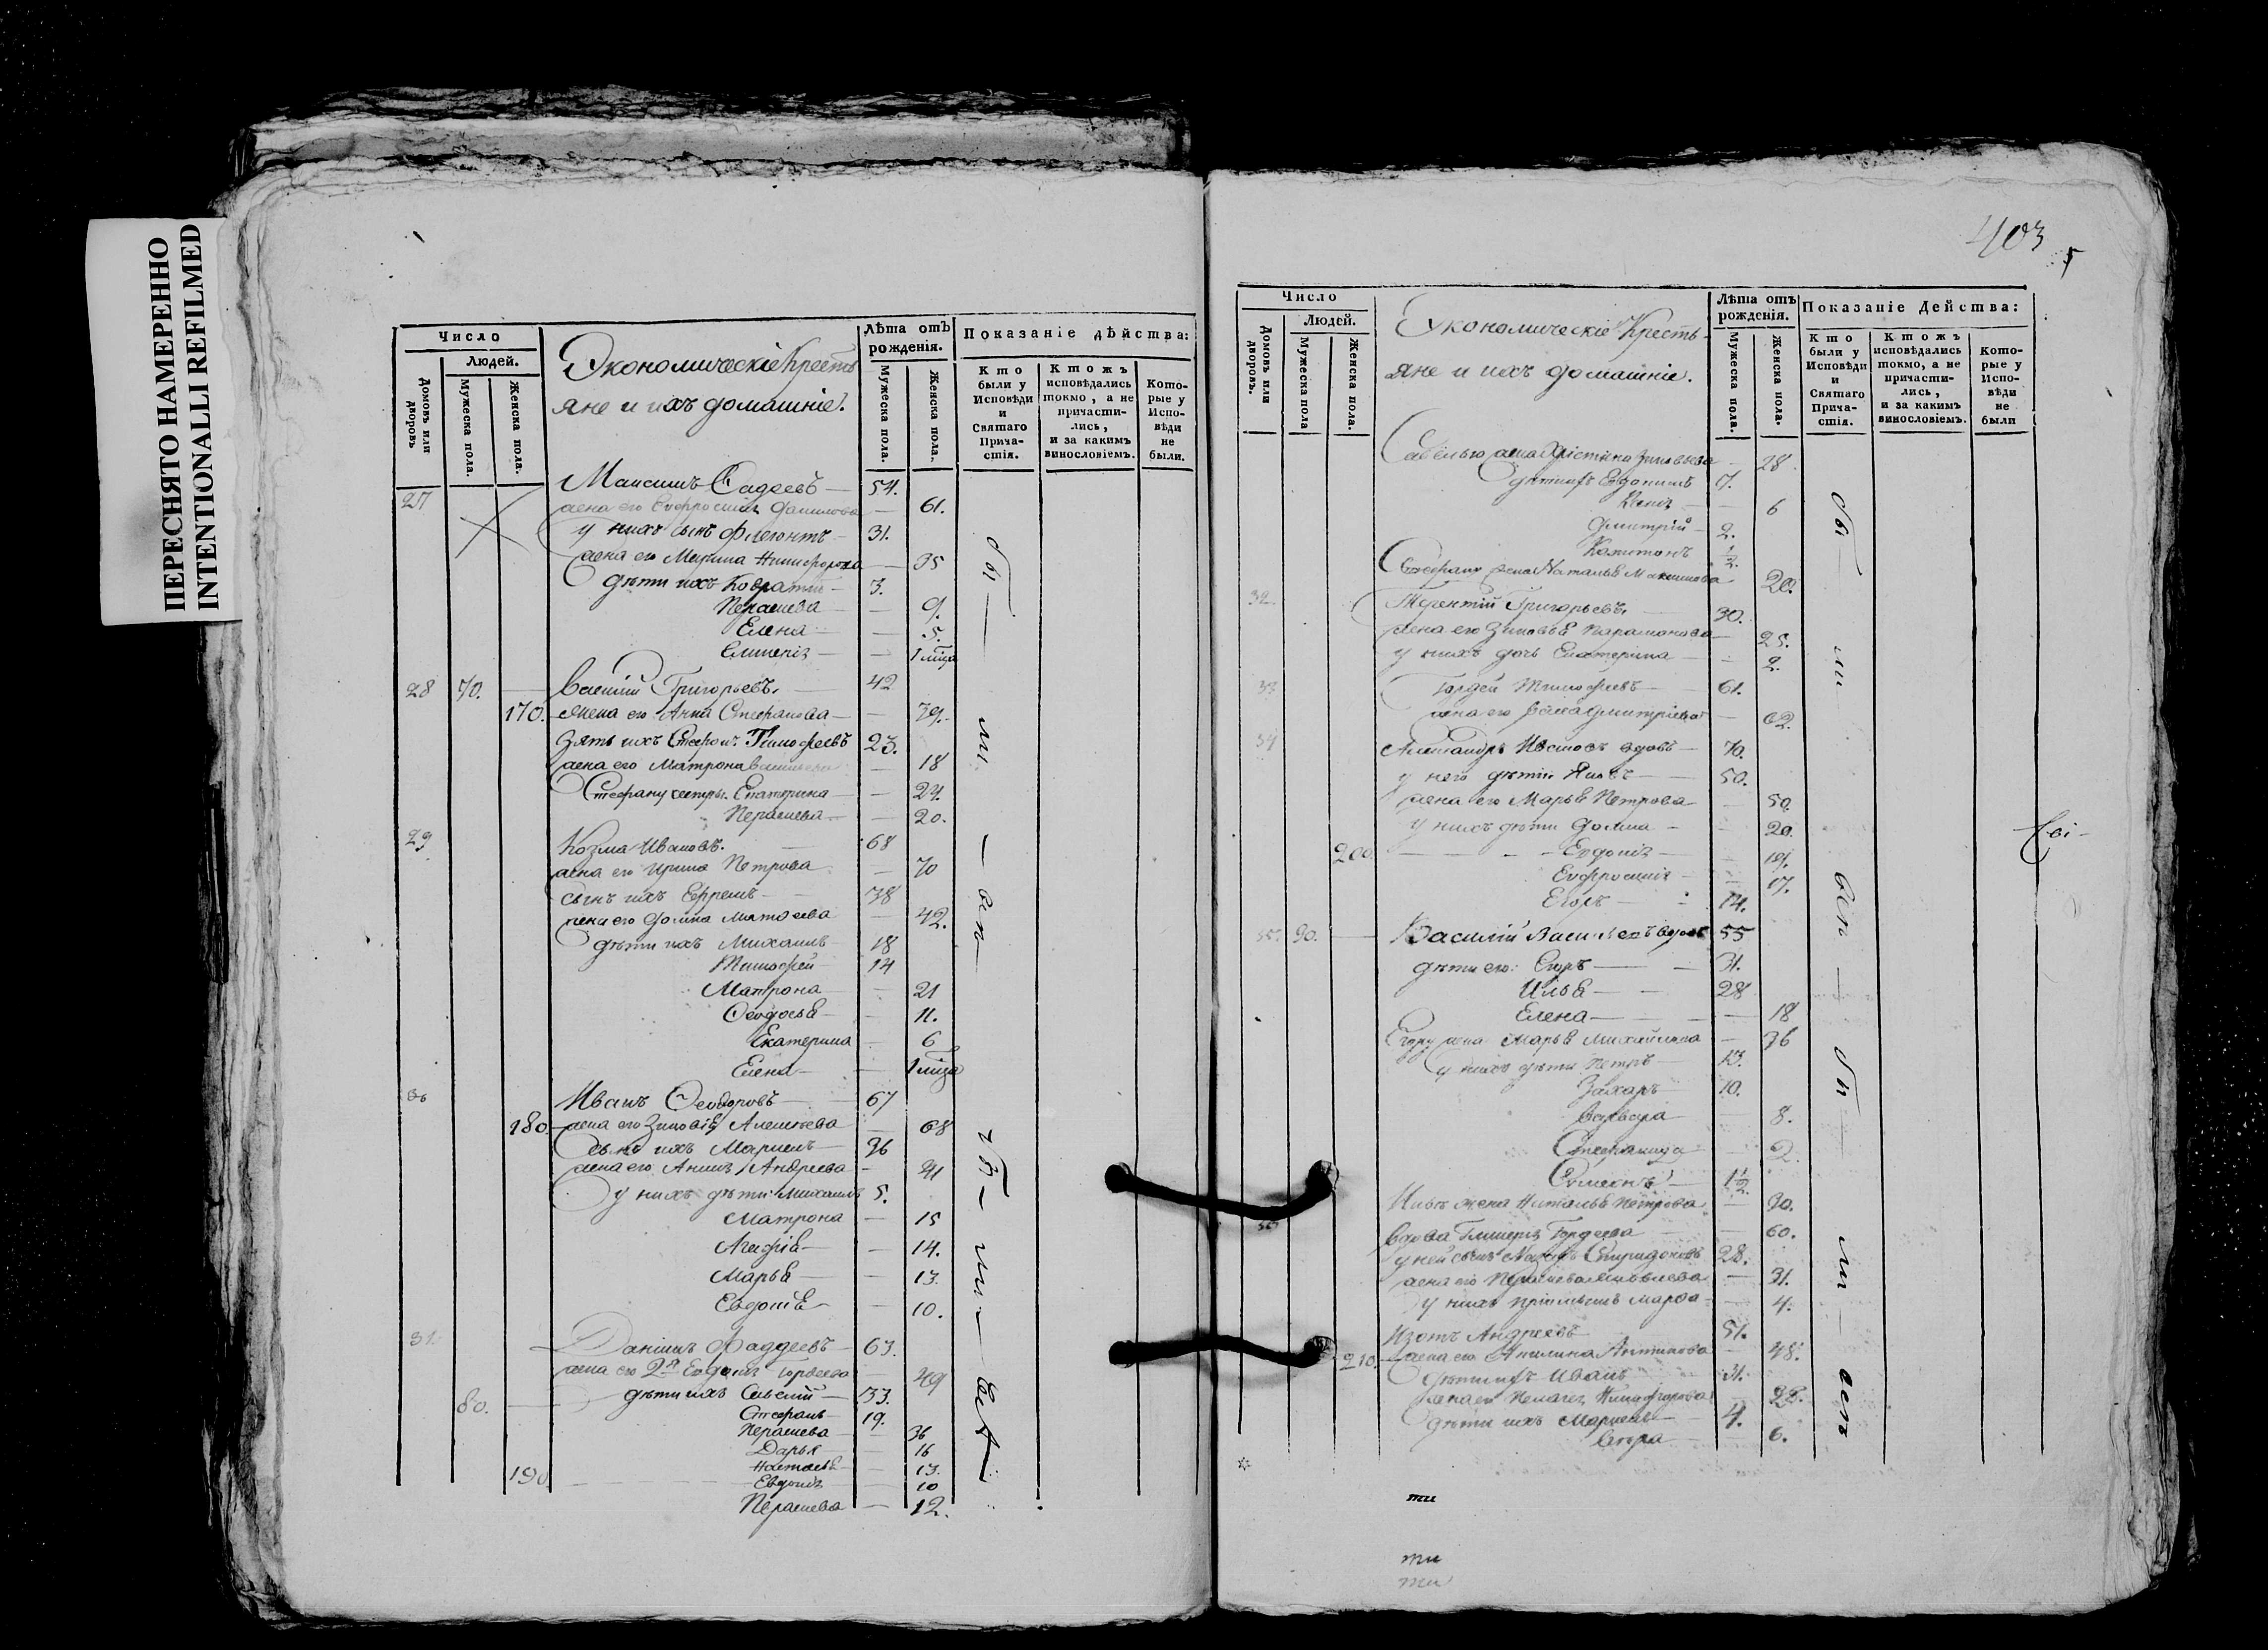 ПЕРЕСНЯТО НАМЕРЕННО
INTENTIONALLI REFILMED
Число
Людей.
Домовъ или дворовъ
Мужеска пола.
Женска пола.
Экономическіе Кресть
яне и ихъ домашніе.
Лѣта отъ рожденія.
Мужеска пола.
Женска пола.
Показаніе дѣйства:
Кто были у Исповѣди и Святаго Прича-стія.
Ктожъ исповѣдались токмо, а не причасти-лись, и за какимъ винословіемъ.
Кото-рые у Испо-вѣди не были.
27 Максимъ Фадеевъ 54.
жена его Евфросинія Данилова 61.
у нихъ сынъ Флегонтъ 31.
жена его Марина Никифорова 35
дѣти ихъ Кодратій 3.
Пераскева 9.
Елена 5.
Гликерія 1 мѣца
28 70. Василій Григорьевъ 42
170. жена его Анна Стефанова 39.
зять ихъ Стефанъ Тимофеевъ 23.
жена его Матрона Васильева 18
Стефану сестры Екатерина 24.
Пераскева 20.
29 Козма Ивановъ. 68
жена его Ирина Петрова 70
сынъ ихъ Ефремъ 38
жена его Домна Матвеева 42.
дѣти ихъ Михаилъ 18
Тимофей 14
Матрона 21
Феодосья 11.
Екатерина 6
Елена 1 мѣца
30 Иванъ Феодоровъ 67
180. жена его Зиновія Алексеева 68
сынъ ихъ Маркелъ 36
жена его Анна Андреева 41
у нихъ дѣти Михаилъ 5.
Матрона 15
Агафія 14.
Марья 13.
Евдокія 10.
31. Даніилъ Фаддеевъ 63.
жена его 2я Евдокія Гордеева 49
80. дѣти ихъ Савелій 33.
Стефанъ 19.
Пераскева 36
Дарья 16
Настасья 13.
190 Евдокія 10
Пераскева 12.
403
Число
Людей.
Домовъ или дворовъ.
Мужеска пола
Женска пола.
Экономическіе Кресть-
яне и ихъ домашніе.
Лѣта отъ рожденія.
Мужеска пола.
Женска пола.
Показаніе Действа:
Кто были у Исповѣди и Святаго Прича-стія.
Ктожъ исповѣдались токмо, а не причасти-лись, и за какимъ винословіемъ.
Кото-рые у Испо-вѣди не были
Савелью жена Христина Зиновьева 28
дѣти ихъ Евдокимъ 7.
Ксенія 6
Дмитрій 2.
Капитонъ 1/2.
Стефану жена Наталья Максимова 20.
32. Терентій Григорьевъ 30.
жена его Зиновья Парамонова 25.
у нихъ дочь Екатерина 2.
33. Гордей Тимофеевъ 61.
жена его Васса Дмитріева 62.
34 Александръ Ивановъ вдовъ 70.
у него дѣти Яковъ 50.
жена его Марья Петрова 50.
у нихъ дѣти Домна 20.
200. Евдокія 19.
Евфросинія 17.
Егоръ 14.
35. 90. Василій Васильевъ вдовъ 55
дѣти его: Егоръ 31.
Илья 28
Елена 18
Егору жена Марья Михайлова 36
у нихъ дѣти Петръ 13.
Захаръ 10.
Варвара 8.
Стефанида 2.
Симеонъ 1 1/2.
Ильѣ жена Наталья Петрова 30.
36 Вдова Гликерія Гордеева 60.
у ней сынъ Спиридоновъ 28.
жена его Пераскева 31.
у нихъ пріемышъ Марѳа 4.
Изотъ Андреевъ 51.
210. жена его Акилина Антипова 48.
дѣти ихъ Иванъ 31.
жена его Пелагея Никифорова 28.
дѣти ихъ Маркелъ 4.
6.
ти
ти
ти